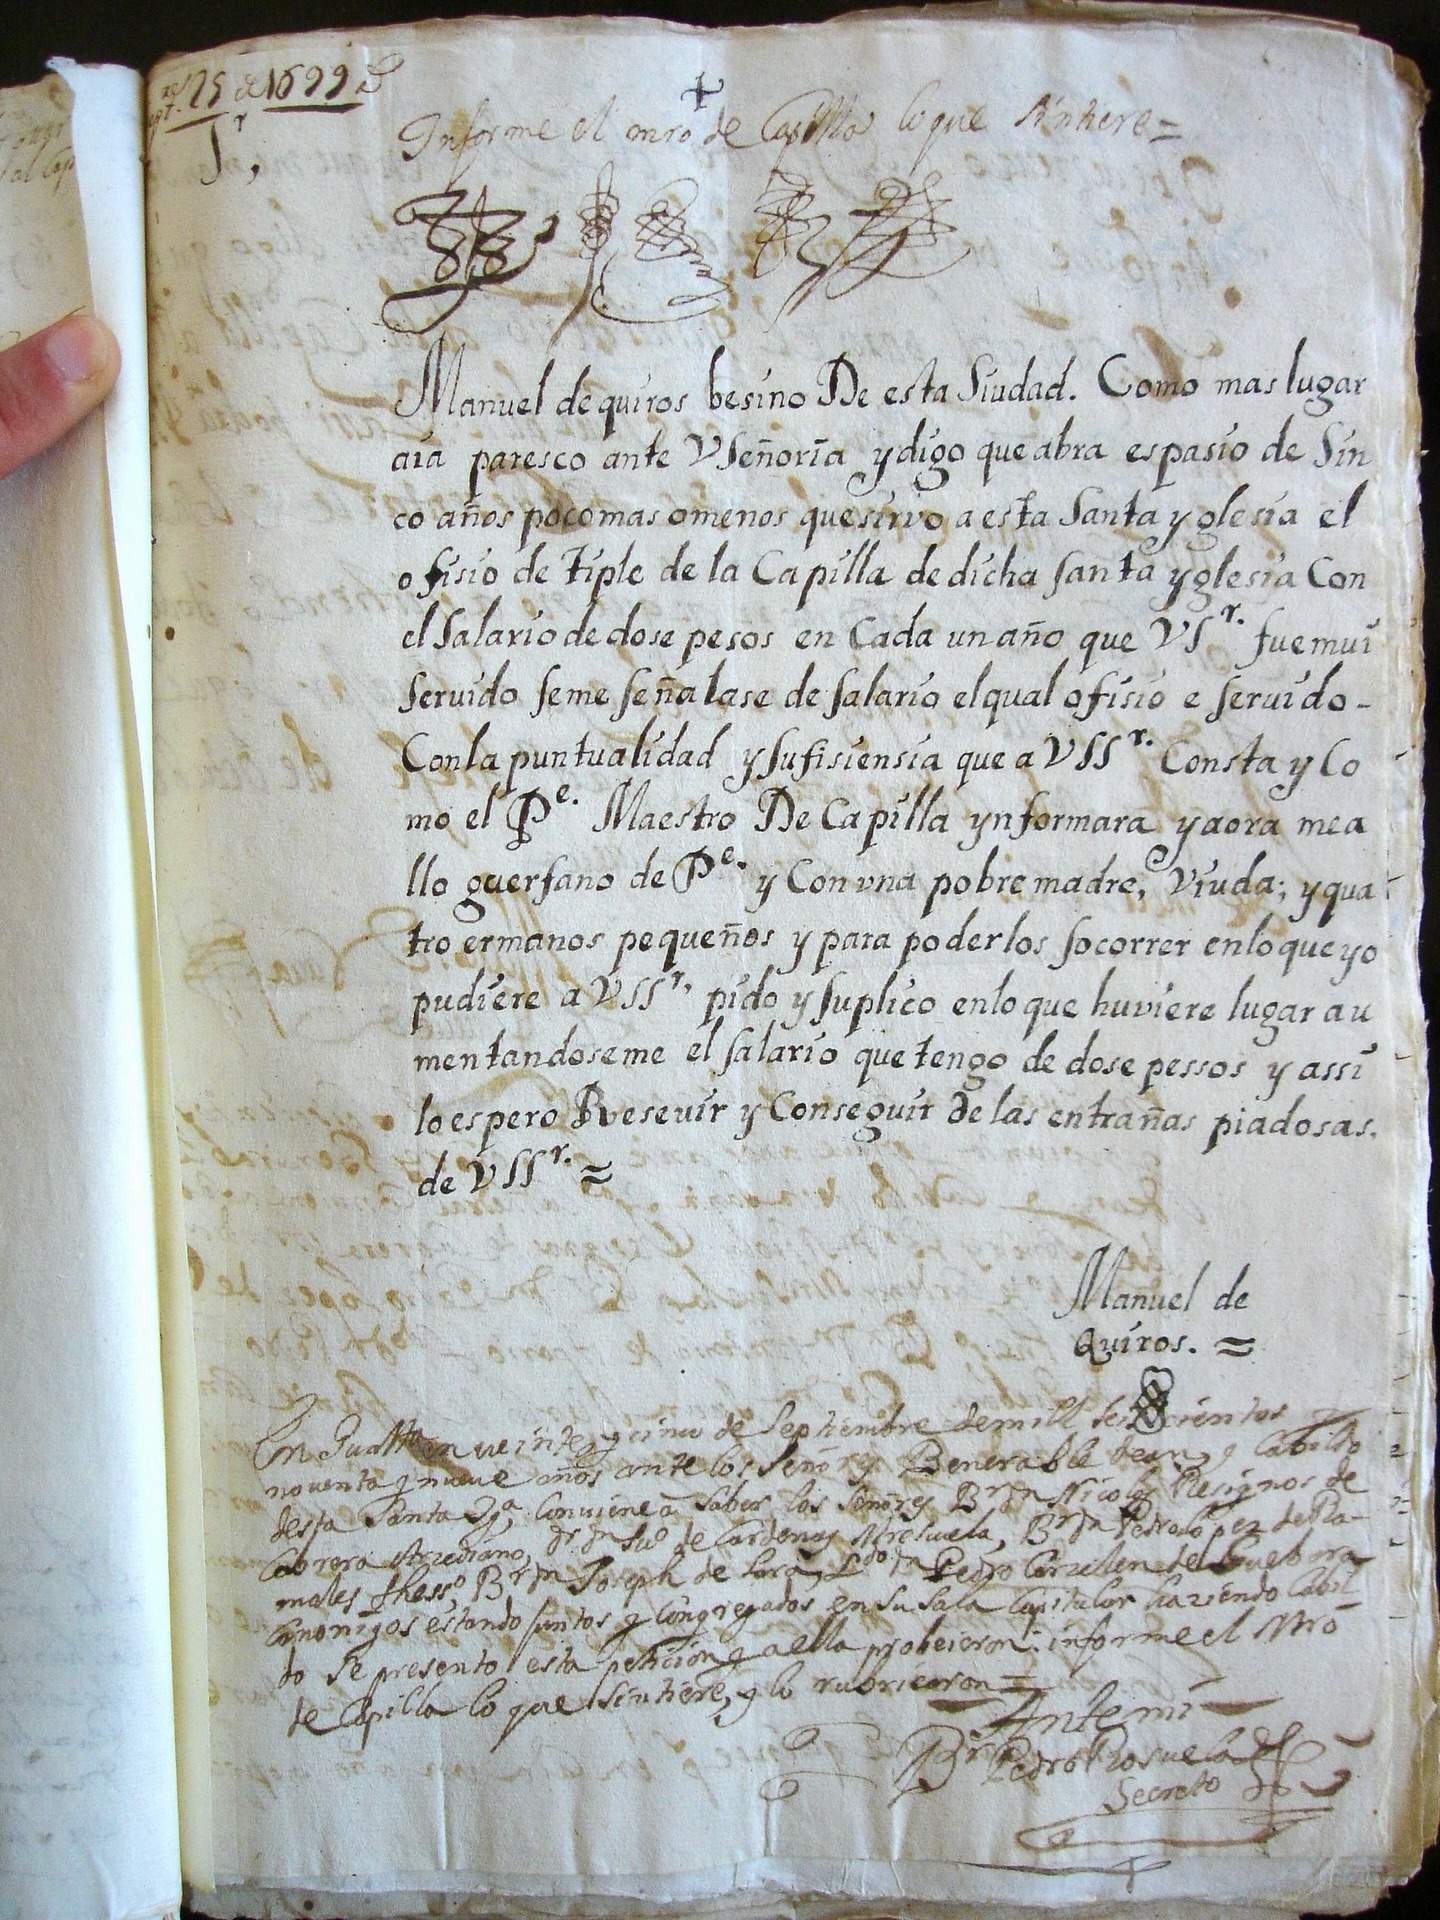 25 de 1699
Sr,
+
Informe el mro de Capilla lo que sintiere=
Manuel de quiros besino De esta Siudad. Como mas lugar
aia paresco ante VSeñoria y digo que abra espasio de Sin
co años poco mas o menos que sirvo a esta Santa yglesia el
ofisio de tiple de la Capilla de dicha santa yglesia Con
el salario de dose pesos en Cada un año que VSr. fue mui
servido se me señalase de salario el qual ofisio e servido -
Con la puntualidad y sufisiensia que a VSSr. Consta y Co
mo el Pe. Maestro De Capilla ynformara y aora me a
llo guerfano de Pe. y Con vna pobre madre, Viuda; y qua
tro ermanos pequeños y para poderlos socorrer en lo que yo
pudiere a VSSr. pido y suplico en lo que huviere lugar au
mentandoseme el salario que tengo de dose pessos y assi
lo espero Resevir y Conseguir de las entrañas piadosas.
de VSSr. =
Manuel de
Quiros. =
En Guatta en veinte y cinco de Septiembre de mill seiscientos y
noventa y nueve años ante los Señores Benerable Dean y Cabildo
desta Santa Yga, Conviene a saber los Señores Br Dn Nicolas Resignos de
Cabrera Arzediano, Dr Dn de Cardenas Mresuela, Br Dn Pedro Lopez de Ra-
males thesso, Br Dn Joseph de Lara, Ldo Dn Pedro del Guebara
Canonigos estando juntos y Congregados en su sala Capitular haziendo Cabil-
do se presento esta peticion y a ella probeieron: informe el Mro
de Capilla lo que sintiere, y lo rubricaron =
Ante mi
Br Pedro Rosuela
Secreto